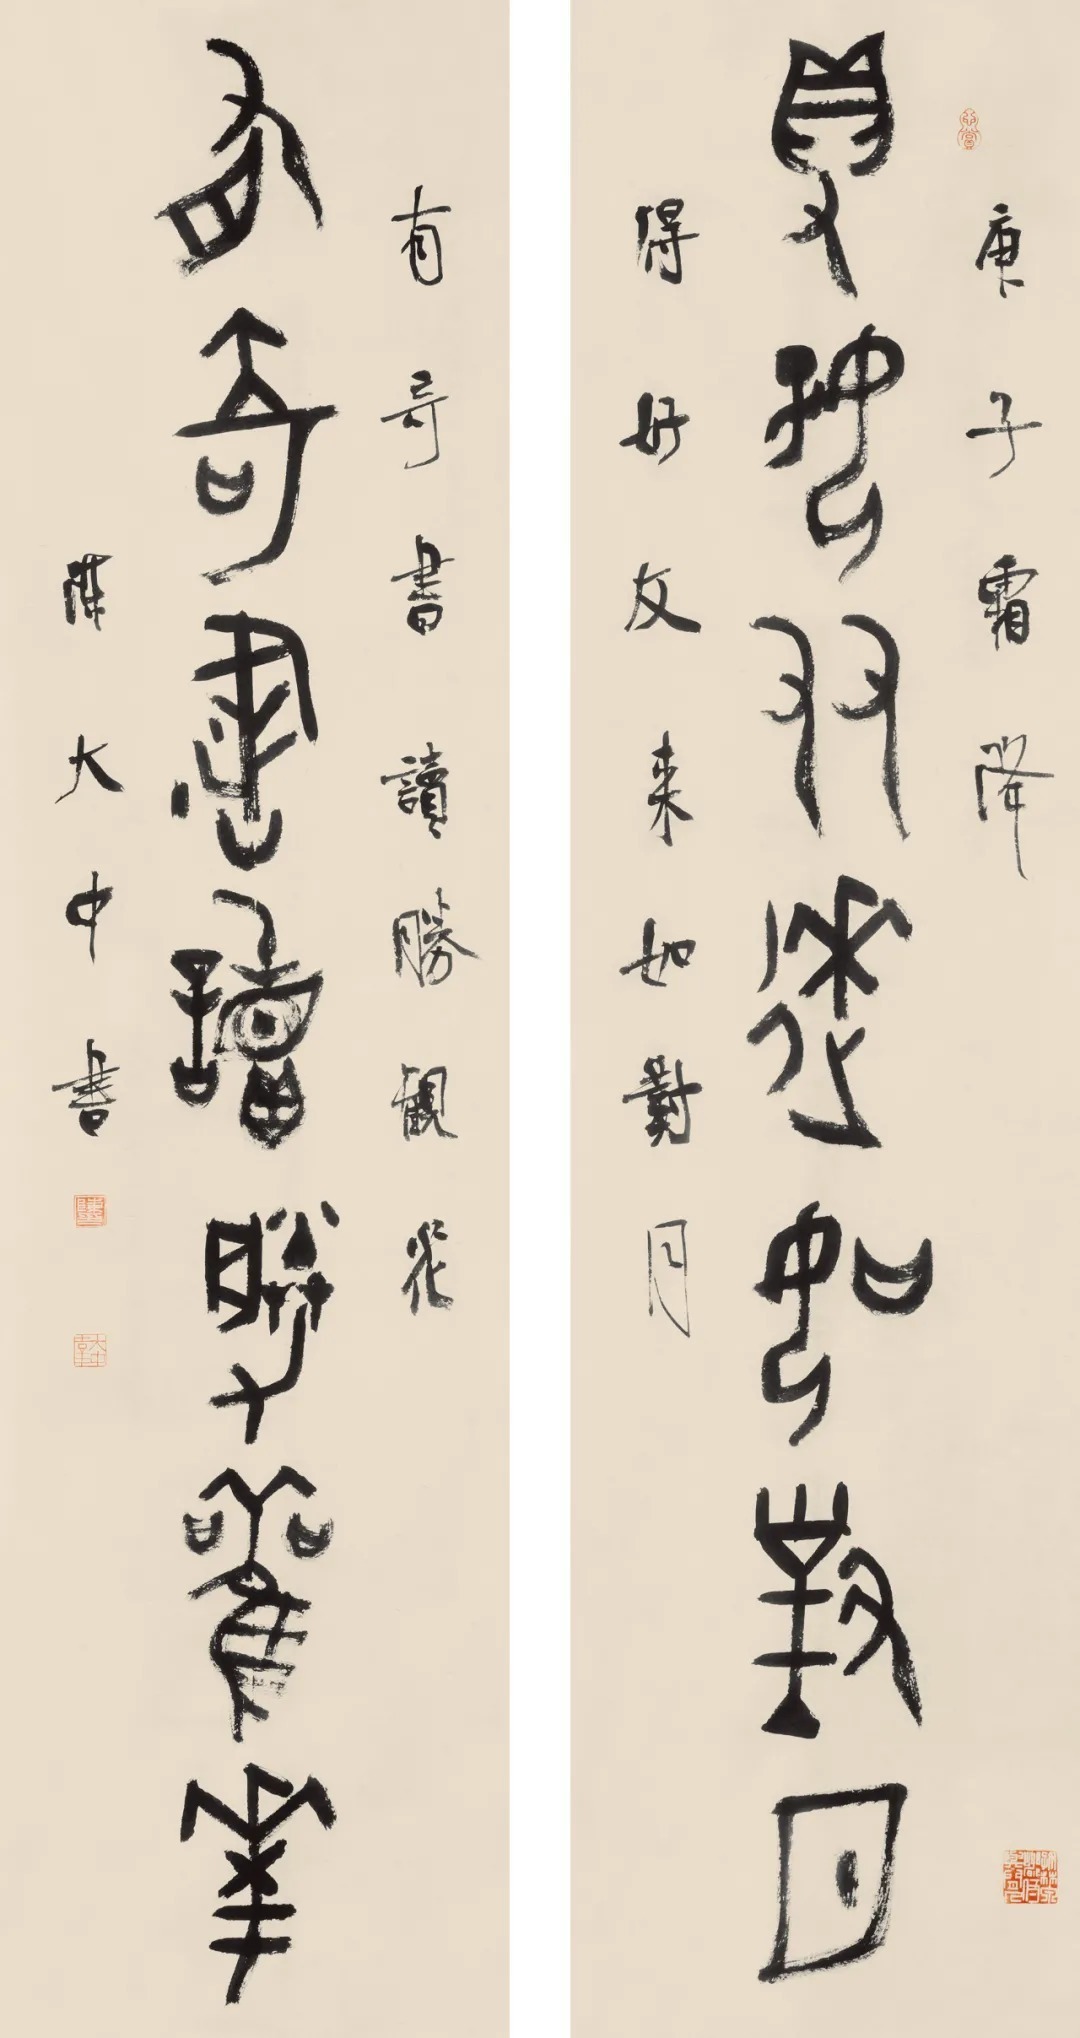 得好友來如對月
庚子霜降
得好友来如對月
有奇書讀勝觀花
有奇書讀勝觀花
陳大中書